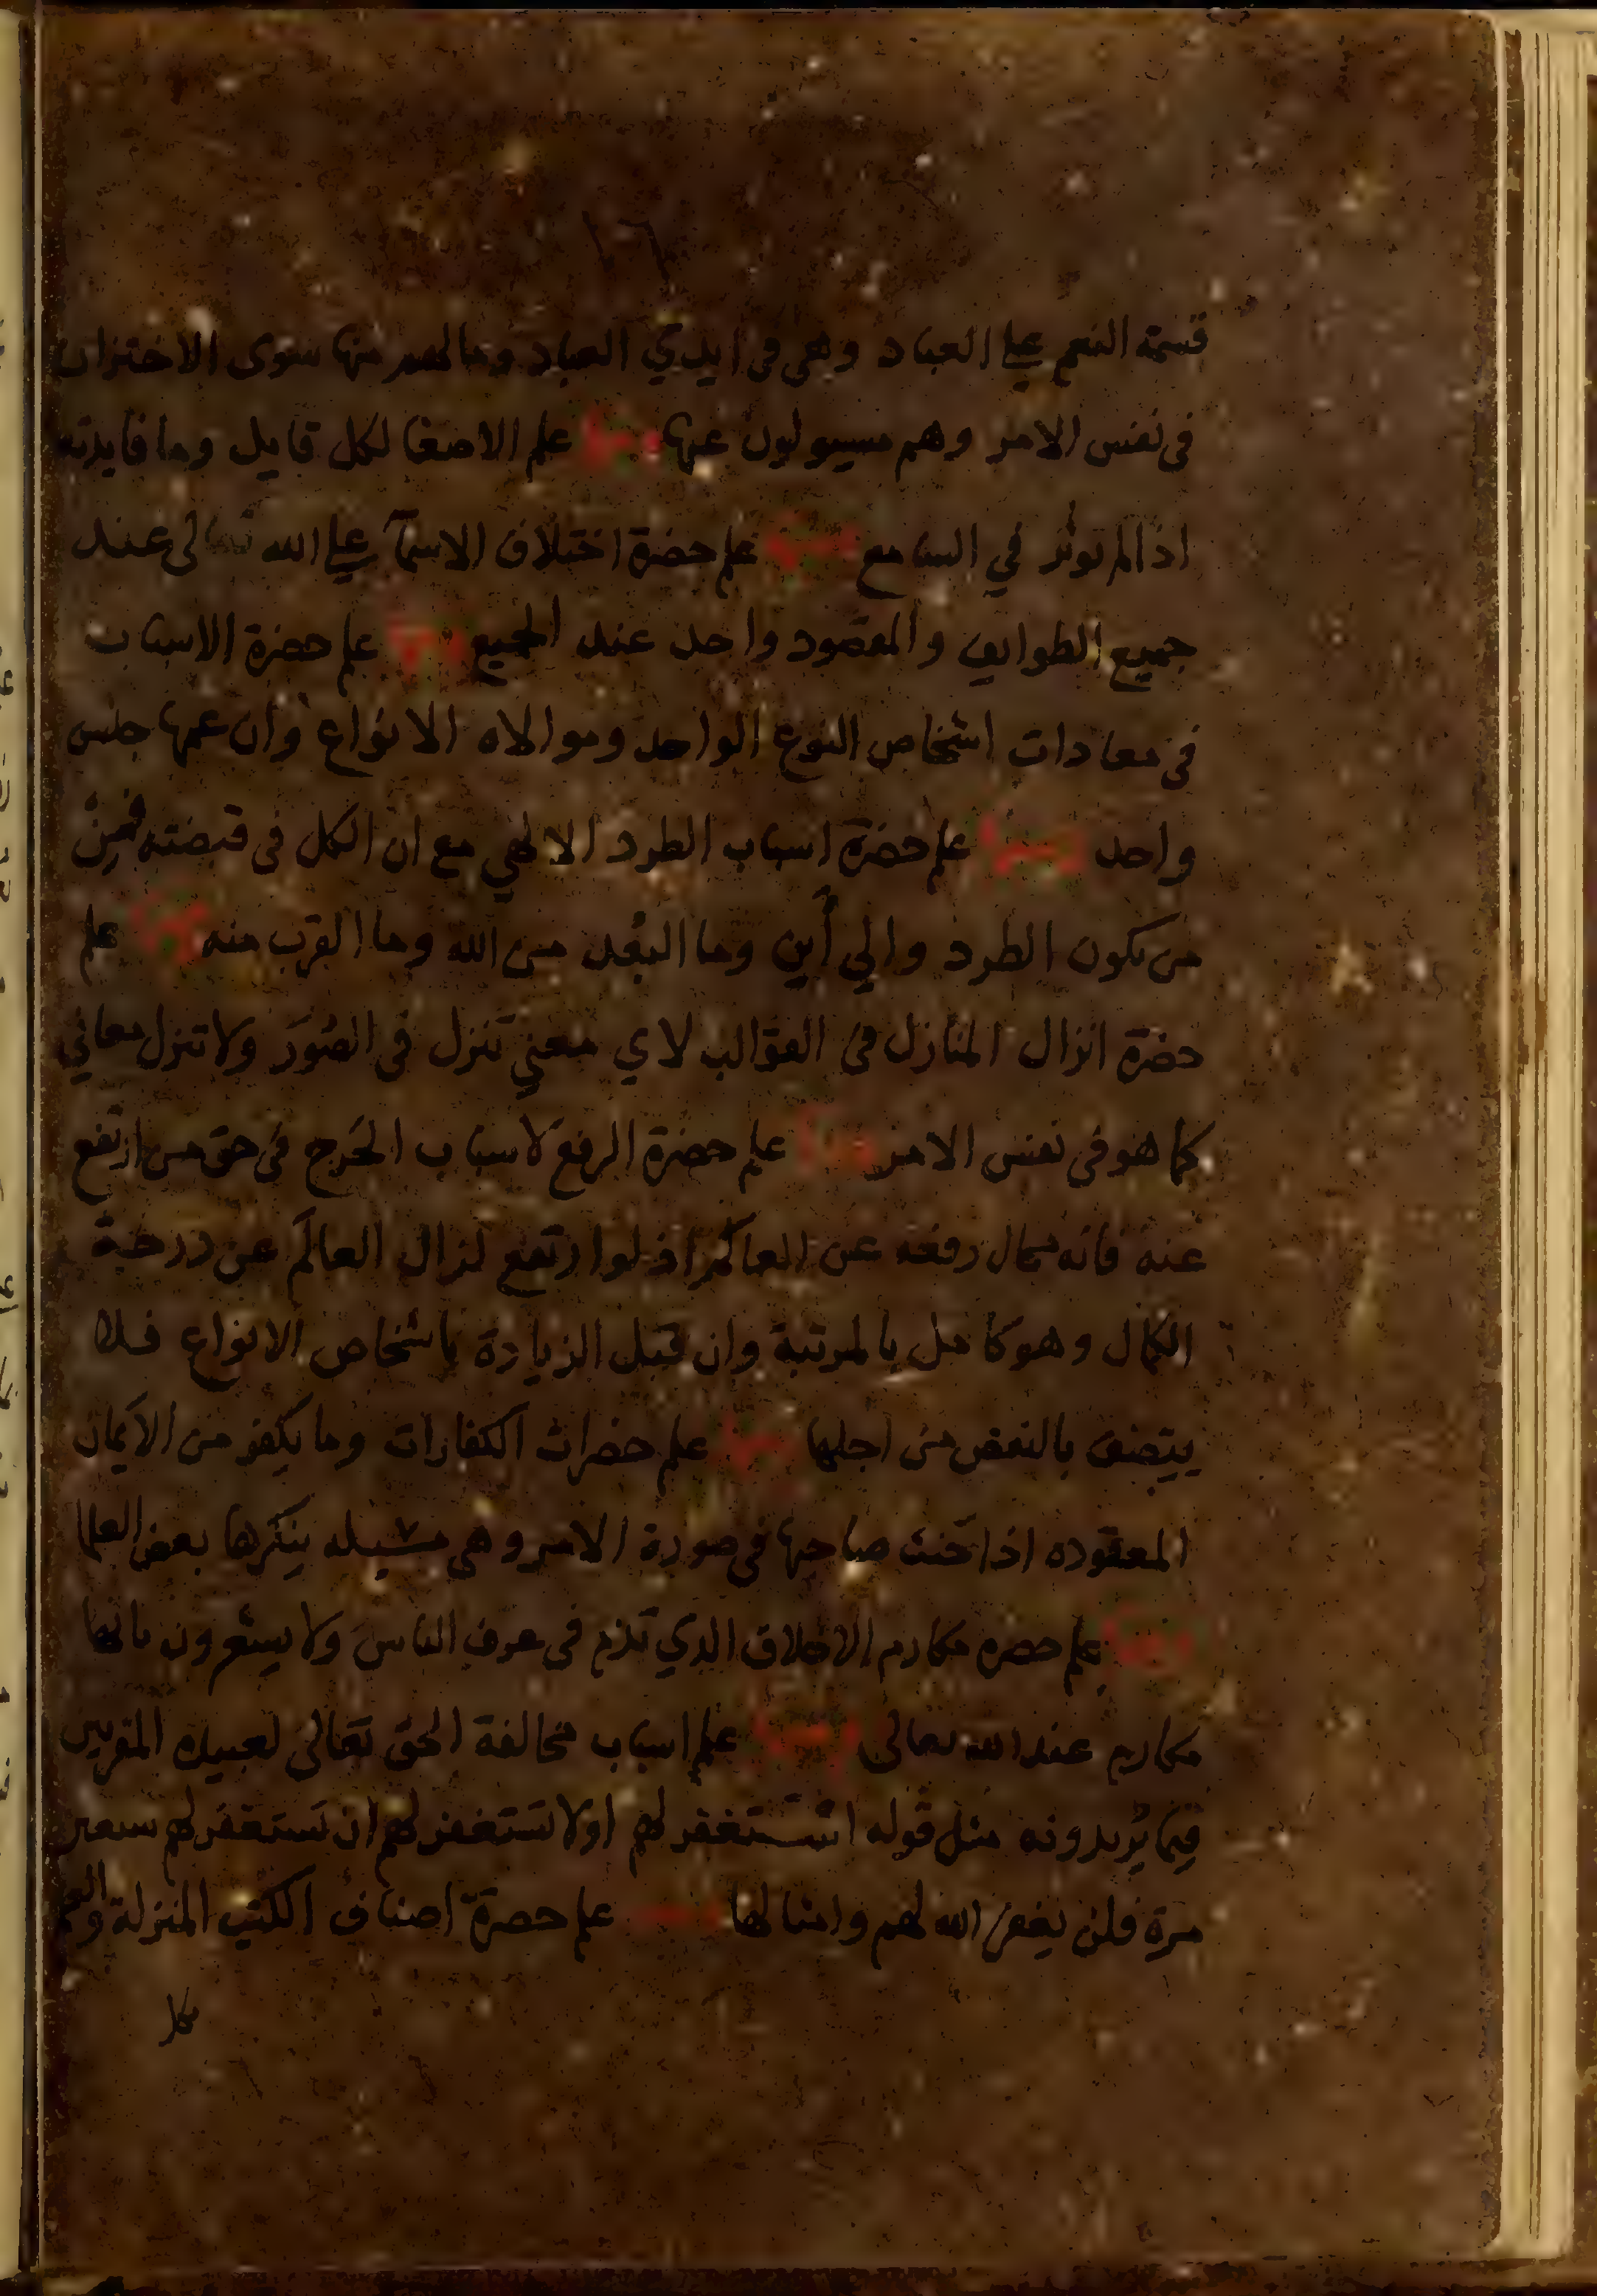 ١٦
قسمة النعم على العباد وهى فى ايدي العباد وما لهم منها سوى الاختزان
فى نفس الامر وهم مسيولون عنها ومنها علم الاصغا لكل قايل وما فايدته
اذا لم توثر في السامع ومنها علم حضرة اختلاف الاسمآ على الله تعالى عند
جميع الطوايف والمقصود واحد عند الجميع ومنها علم حضرة الاسباب
فى معادات اشخاص النوع الواحد وموالاه الانواع وان عمها جنس
واحد ومنها علم حضرة اسباب الطرد الالهي مع ان الكل فى قبضته فمن
من يكون الطرد والي أين وما البُعد من الله وما القرب منه ومنها علم
حضرة انزال المنازل فى القوالب لاي معني تنزل فى الصُوَر ولا تنزل معاني
كما هو فى نفس الامر ومنها علم حضرة الرفع لاسباب الحَرج فى حق من ارتفع
عنه فانه محال رفعه عن العالَم اذ لو ارتفع لزال العالَم عن درجة
الكمال وهو كامل بالمرتبة وان قبل الزيادة باشخاص الانواع فلا
يتصف بالنقص من اجلها ومنها علم حضرات الكفارات وما يكفر من الأيمان
المعقوده اذا حَنث صاحبها فى صورة الامر وهى مسيله ينكرها بعض العلما
ومنها علم حضره مكارم الاخلاق الذي تذم فى عرف الناس ولا يشعرون بانها
مكارم عند الله تعالى ومنها علم اسباب مخالفة الحق تعالى لعبيده المقربين
فيما يُريدونه مثل قوله استغفر لهم اولا تستغفر لهم ان تستغفر لهم سبعين
مرة فلن يغفر الله لهم وامثالها ومنها علم حضرة اصناف الكتب المنزلة